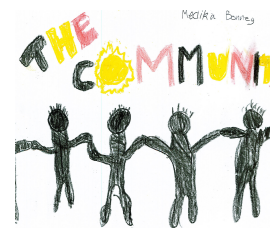 Medika Bonney
THE
COMMUNIT